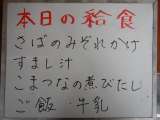 本日の給食
さばのみぞれかけ
すまし汁
こまつなの煮びたし
ご飯 牛乳